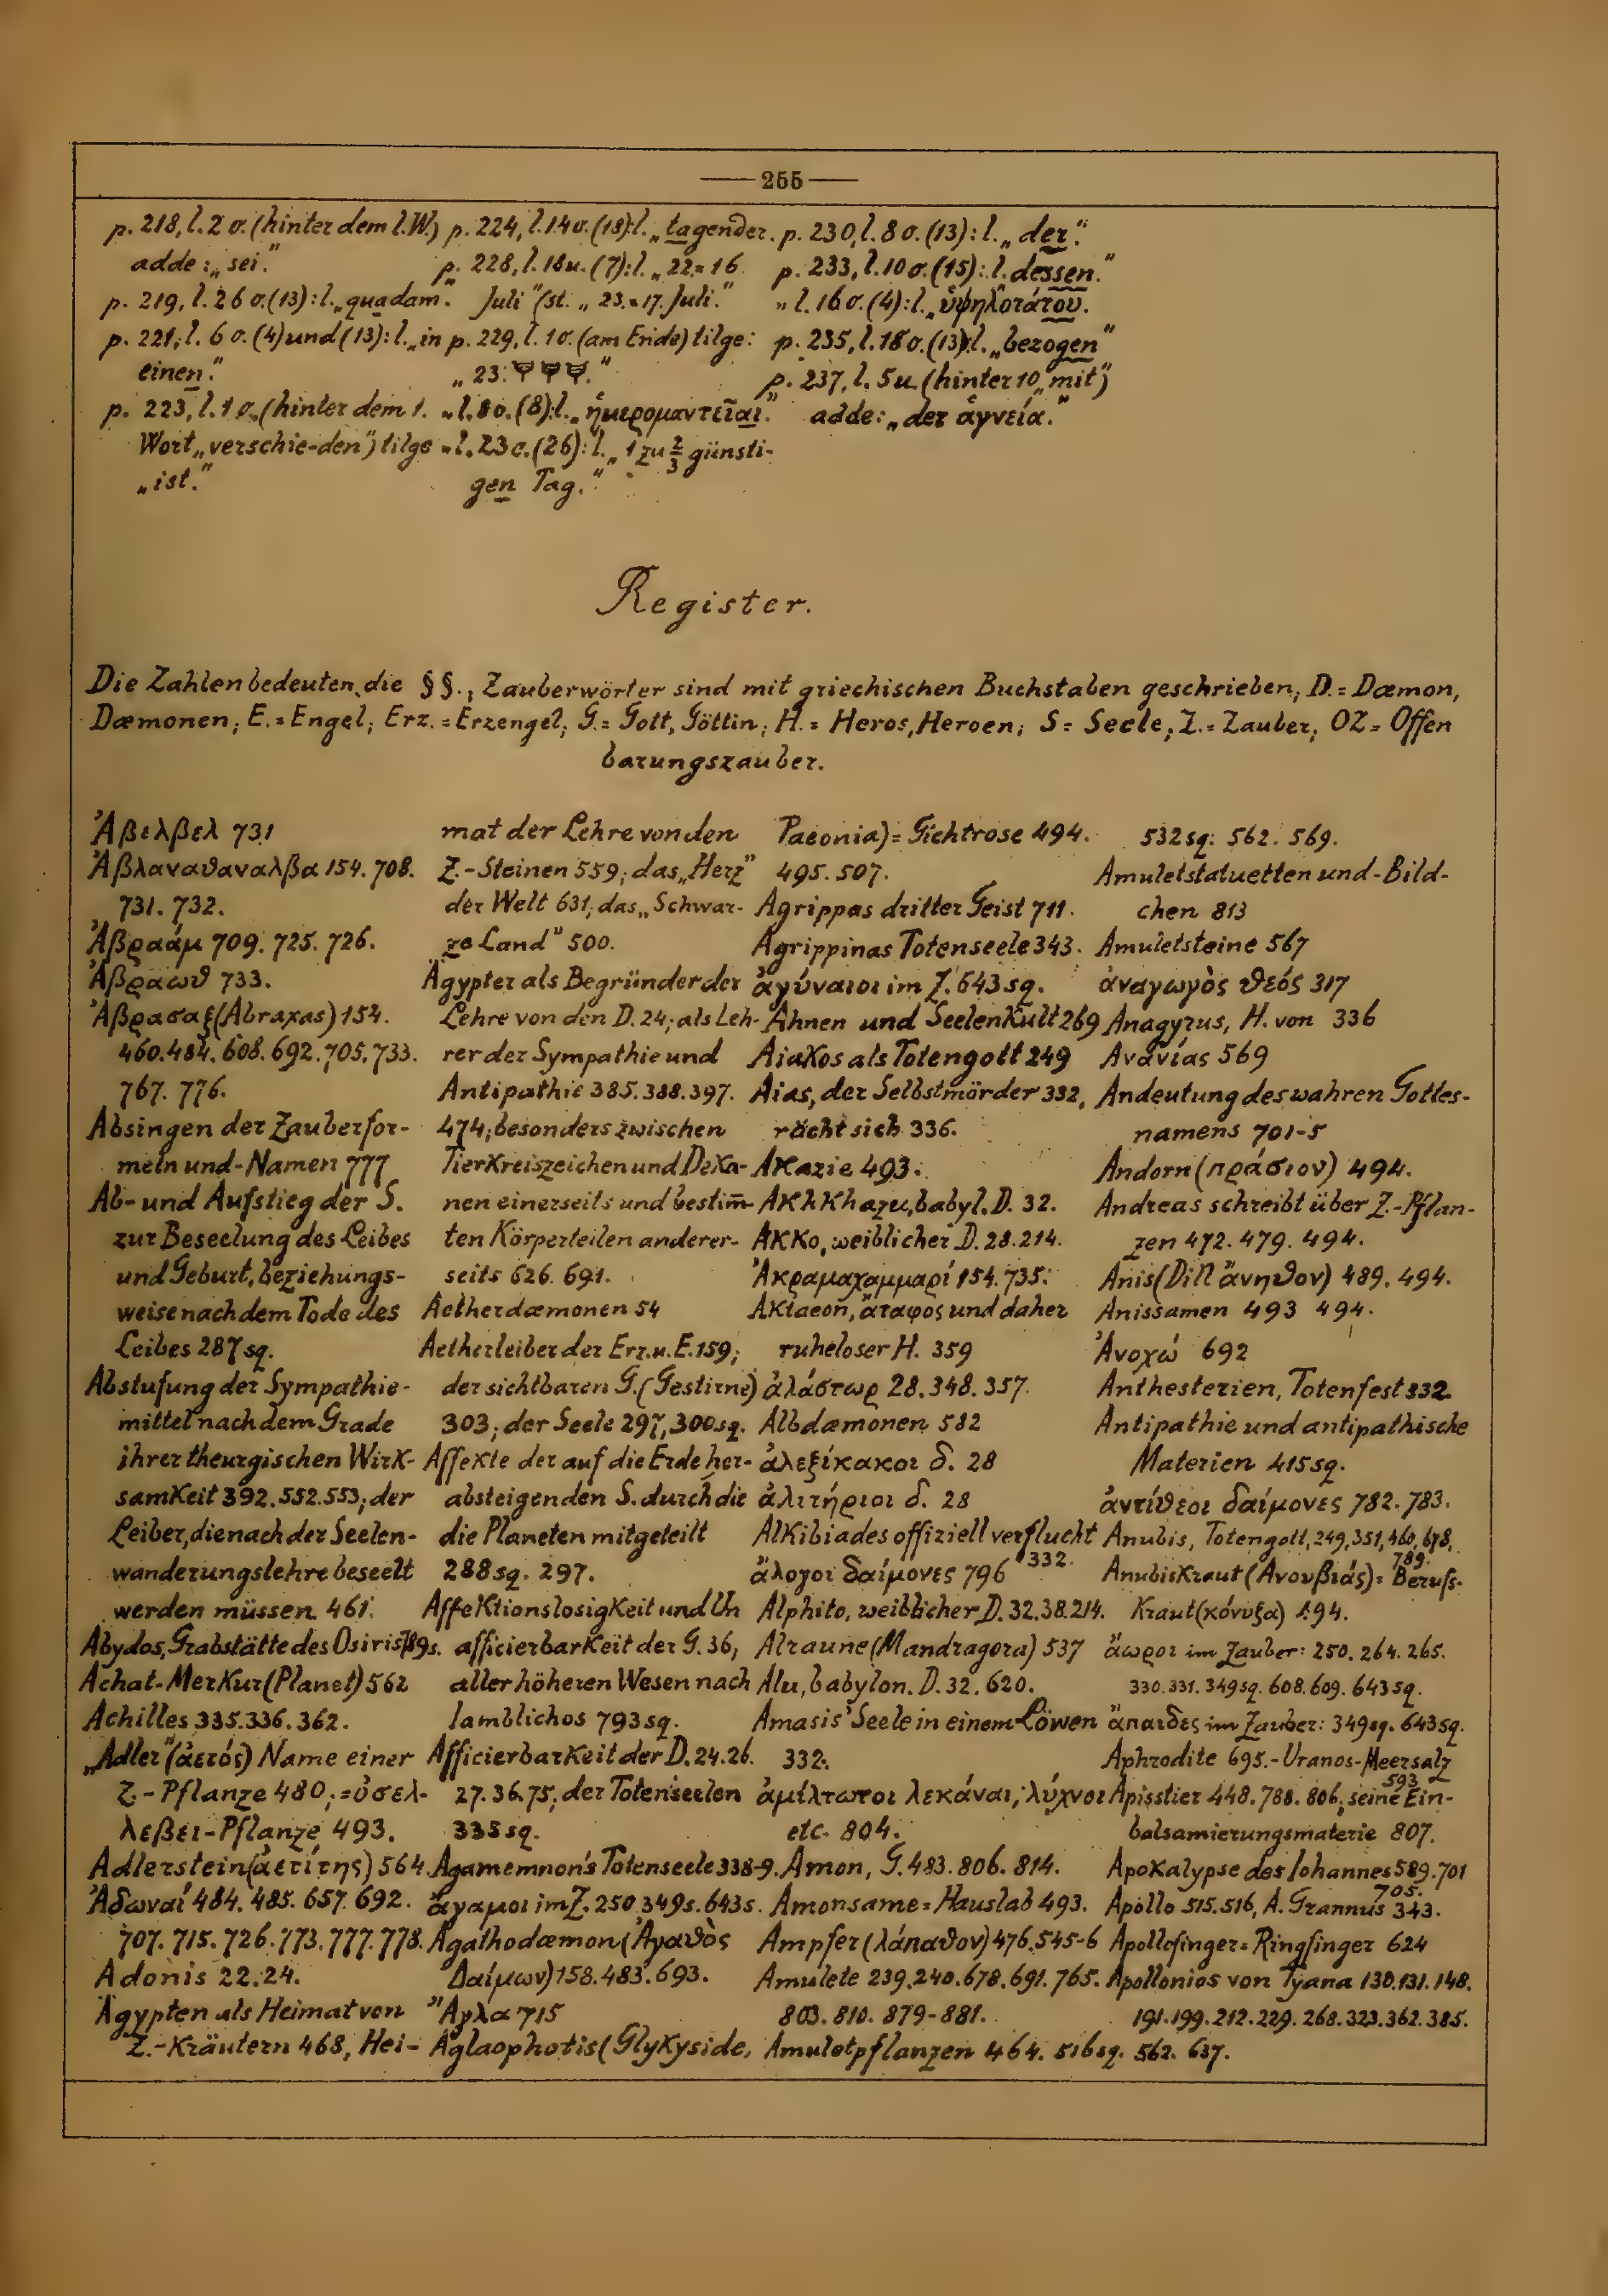 — 255 —
p. 218, l. 2 o. (hinter dem l. W.)
adde: „sei."
p. 219, l. 26 o. (13): l. „quadam."
p. 221, l. 6 o. (4) und (13): l. „in
einen."
p. 223, l. 1 o. (hinter dem 1.
Wort „verschie-den") tilge
„ist."
p. 224, l. 14 o. (18): l. „tagender.
p. 228, l. 18 u. (7): l. „22.=16.
Juli" (st. „23.=17. Juli."
p. 229, l. 1 o. (am Ende) tilge:
„23:
„ l. 8 o. (8): l. „ἡμερομαντεῖαι."
„ l. 23 o. (26): l. „1 zu 2/3 günsti-
gen Tag."
p. 230, l. 8 o. (13): l. „der."
p. 233, l. 10 o. (15): l. dessen."
„ l. 16 o. (4): l. „ὑψηλοτάτου.
p. 235, l. 18 o. (13): l. „bezogen"
p. 237, l. 5 u. (hinter 10 „mit")
adde: „der ἁγνεία."
Register.
Die Zahlen bedeuten die §§.; Zauberwörter sind mit griechischen Buchstaben geschrieben; D. = Dæmon,
Dæmonen; E. = Engel; Erz. = Erzengel; G. = Gott, Göttin; H. = Heros, Heroen; S = Seele; Z. = Zauber; OZ = Offen
barungszauber.
Ἀβελβελ 731
Ἀβλαναθαναλβα 154. 708.
731. 732.
Ἀβραάμ 709. 725. 726.
Ἀβραωθ 733.
Ἀβρασαξ (Abraxas) 154.
460. 484. 608. 692. 705. 733.
767. 776.
Absingen der Zauberfor-
meln und -Namen 777
Ab- und Aufstieg der S.
zur Beseelung des Leibes
und Geburt, beziehungs-
weise nach dem Tode des
Leibes 287 sq.
Abstufung der Sympathie-
mittel nach dem Grade
ihrer theurgischen Wirk-
samkeit 392. 552. 553; der
Leiber, die nach der Seelen-
wanderungslehre beseelt
werden müssen 461.
Abydos, Grabstätte des Osiris 789s.
Achat-Merkur (Planet) 562
Achilles 335. 336. 362.
„Adler" (ἀετός) Name einer
Z.-Pflanze 480; = ὀσελ-
λεβει-Pflanze 493.
Adlerstein (ἀετίτης) 564.
Ἀδωναί 484. 485. 657. 692.
707. 715. 726. 773. 777. 778.
Adonis 22. 24.
Ägypten als Heimat von
Z.-Kräutern 468, Hei-
mat der Lehre von den
Z.-Steinen 559; das „Herz"
der Welt 631; das „Schwar-
ze Land" 500.
Ägypter als Begründer der
Lehre von den D. 24; als Leh-
rer der Sympathie und
Antipathie 385. 388. 397.
474; besonders zwischen
Tierkreiszeichen und Deka-
nen einerseits und bestim̄-
ten Körperteilen anderer-
seits 626. 691.
Aetherdæmonen 54
Aetherleiber der Erz. u. E. 159;
der sichtbaren G. (Gestirne)
303; der Seele 297, 300 sq.
Affekte der auf die Erde her-
absteigenden S. durch die
die Planeten mitgeteilt
288 sq. 297.
Affektionslosigkeit und Un
afficierbarkeit der G. 36;
aller höheren Wesen nach
Iamblichos 793 sq.
Afficierbarkeit der D. 24. 26.
27. 36. 75; der Totenseelen
335 sq.
Agamemnon's Totenseele 338-9.
ἄγαμοι im Z. 250. 349s. 643s.
Agathodæmon (Ἀγαθὸς
Δαίμων) 158. 483. 693.
Ἀγλα 715
Aglaophotis (Glykyside,
Paeonia) = Gichtrose 494.
495. 507.
Agrippas dritter Geist 711.
Agrippinas Totenseele 343.
ἀγύναιοι im Z. 643 sq.
Ahnen und Seelenkult 269
Aiakos als Totengott 249
Aias, der Selbstmörder 332,
rächt sich 336.
Akazie 493.
Akhkhazu, babyl. D. 32.
Akko, weiblicher D. 28. 214.
Ἀκραμαχαμμαρί 154. 735.
Aktaeon, ἄταφος und daher
ruheloser H. 359
ἀλάστωρ 28. 348. 357.
Albdæmonen 582
ἀλεξίκακοι δ. 28
ἀλιτήριοι δ. 28
Alkibiades offiziell verflucht
332.
ἄλογοι δαίμονες 796
Alphito, weiblicher D. 32. 38. 214.
Alraune (Mandragora) 537
Alu, babylon. D. 32. 620.
Amasis' Seele in einem Löwen
332.
ἀμίλτωτοι λεκάναι, λύχνοι
etc. 804.
Amon, G. 483. 806. 814.
Amonsame = Hauslab 493.
Ampfer (λάπαθον) 476. 545-6
Amulete 239. 240. 678. 691. 765.
803. 810. 879-881.
Amuletpflanzen 464. 516 sq.
532 sq. 562. 569.
Amuletstatuetten und -Bild-
chen 813
Amuletsteine 567
ἀναγωγὸς θεός 317
Anagyrus, H. von 336
Ἀνανίας 569
Andeutung des wahren Gottes-
namens 701-5
Andorn (πράσιον) 494.
Andreas schreibt über Z.-Pflan-
zen 472. 479. 494.
Anis (Dill ἄνηθον) 489. 494.
Anissamen 493 494.
Ἀνοχώ 692
Anthesterien, Totenfest 332.
Antipathie und antipathische
Materien 415 sq.
ἀντίθεοι δαίμονες 782. 783.
Anubis, Totengott, 249, 351, 460, 678,
789.
Anubiskraut (Ἀνουβιάς) = Berufs-
kraut (κόνυζα) 494.
ἄωροι im Zauber: 250. 264. 265.
330. 331. 349 sq. 608. 609. 643 sq.
ἄπαιδες im Zauber: 349 sq. 643 sq.
Aphrodite 695.-Uranos-Meersalz
593
Apisstier 448. 788. 806; seine Ein-
balsamierungsmaterie 807.
Apokalypse des Iohannes 589. 701
705.
Apollo 515. 516, A. Grannus 343.
Apollofinger = Ringfinger 624
Apollonios von Tyana 130. 131. 148.
191. 199. 212. 229. 268. 323. 362. 385.
562. 637.